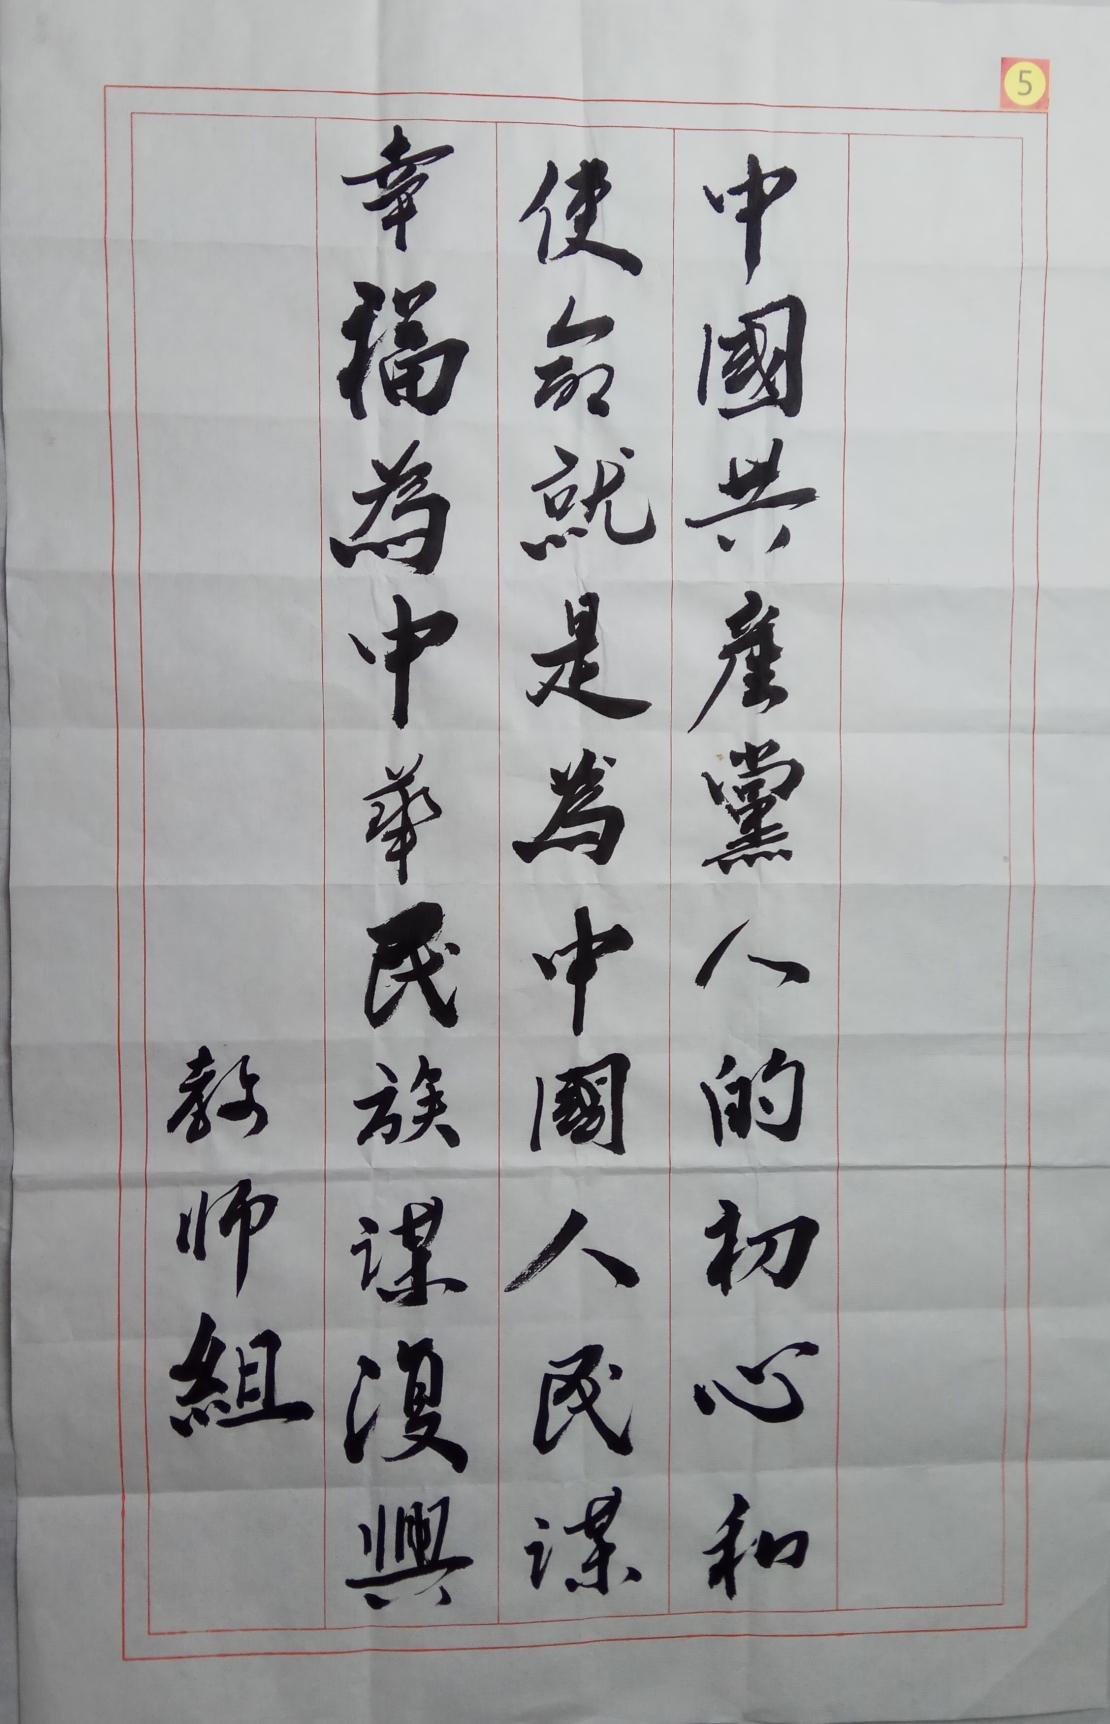 5
中國共產黨人的初心和
使命就是為中國人民謀
幸福為中華民族謀復興
教师組